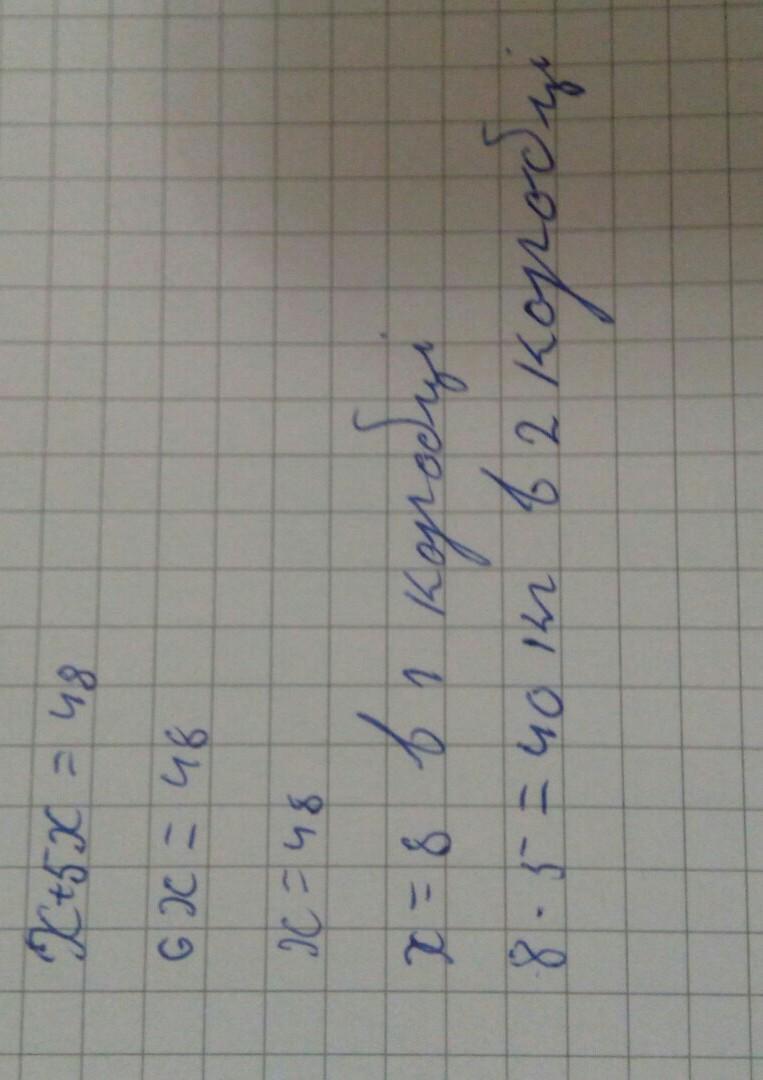 x+5x=48
6x=48
x=48
x=8 в 1 коробці
8·5=40 кг в 2 коробці